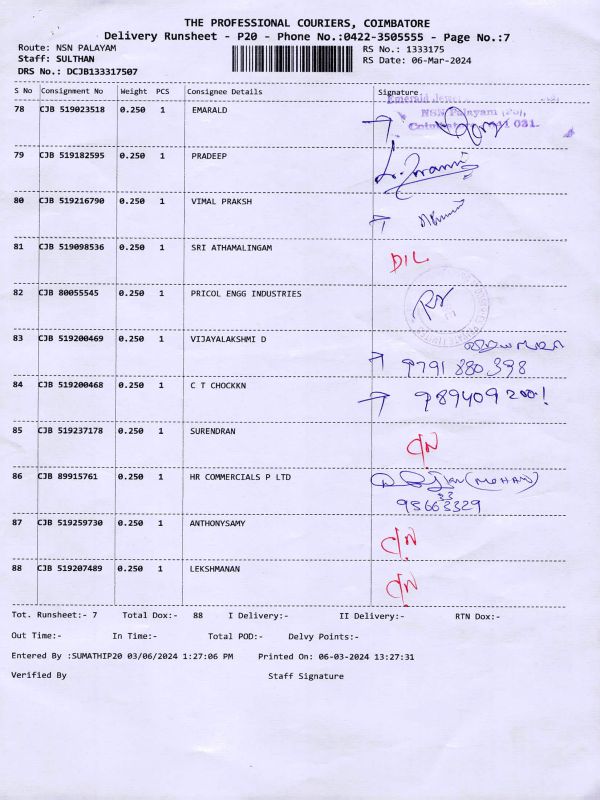 THE PROFESSIONAL COURIERS, COIMBATORE
Delivery Runsheet - P20 - Phone No.:0422-3505555 - Page No.:7
Route: NSN PALAYAM RS No.: 1333175
Staff: SULTHAN RS Date: 06-Mar-2024
DRS No.: DCJB133317507
S No Consignment No Weight PCS Consignee Details Signature
78 CJB 519023518 0.250 1 EMARALD
Emerald
NSN Palayam
031.
79 CJB 519182595 0.250 1 PRADEEP
80 CJB 519216790 0.250 1 VIMAL PRAKSH
81 CJB 519098536 0.250 1 SRI ATHAMALINGAM DIL
82 CJB 80055545 0.250 1 PRICOL ENGG INDUSTRIES
83 CJB 519200469 0.250 1 VIJAYALAKSHMI D
9791 880 398
84 CJB 519200468 0.250 1 C T CHOCKKN
85 CJB 519237178 0.250 1 SURENDRAN C/N
86 CJB 89915761 0.250 1 HR COMMERCIALS P LTD (MOHAN)
87 CJB 519259730 0.250 1 ANTHONYSAMY C/N
88 CJB 519207489 0.250 1 LEKSHMANAN C/N
Tot. Runsheet:- 7 Total Dox:- 88 I Delivery:- II Delivery:- RTN Dox:-
Out Time:- In Time:- Total POD:- Delvy Points:-
Entered By :SUMATHIP20 03/06/2024 1:27:06 PM Printed On: 06-03-2024 13:27:31
Verified By Staff Signature